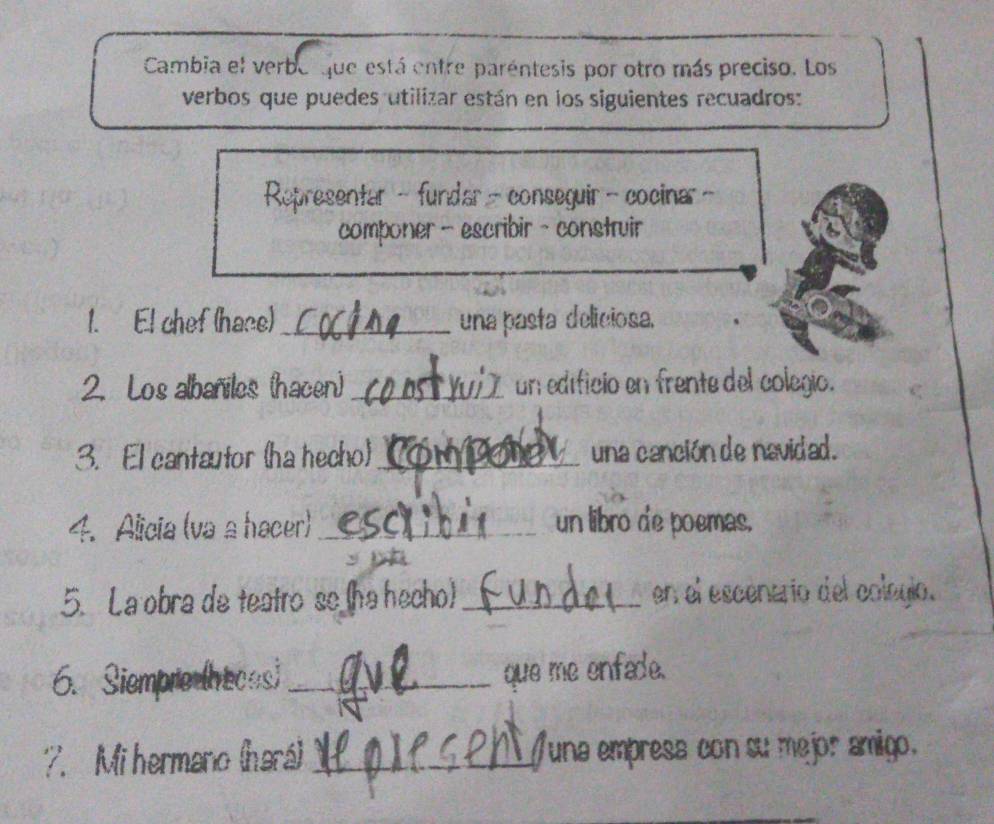 Cambia el verbo que está entre paréntesis por otro más preciso. Los
verbos que puedes utilizar están en los siguientes recuadros:
Representar - fundar - conseguir - cocinar -
componer - escribir - construir
1. El chef (hace) cocina una pasta deliciosa.
2. Los albañiles (hacen) construir un edificio en frente del colegio.
3. El cantautor (ha hecho) componer una canción de navidad.
4. Alicia (va a hacer) escribir un libro de poemas.
5. La obra de teatro se (ha hecho) fundar en el escenario del colegio.
6. Siempre (haces) que que me enfade.
7. Mi hermano (hará) representa una empresa con su mejor amigo.